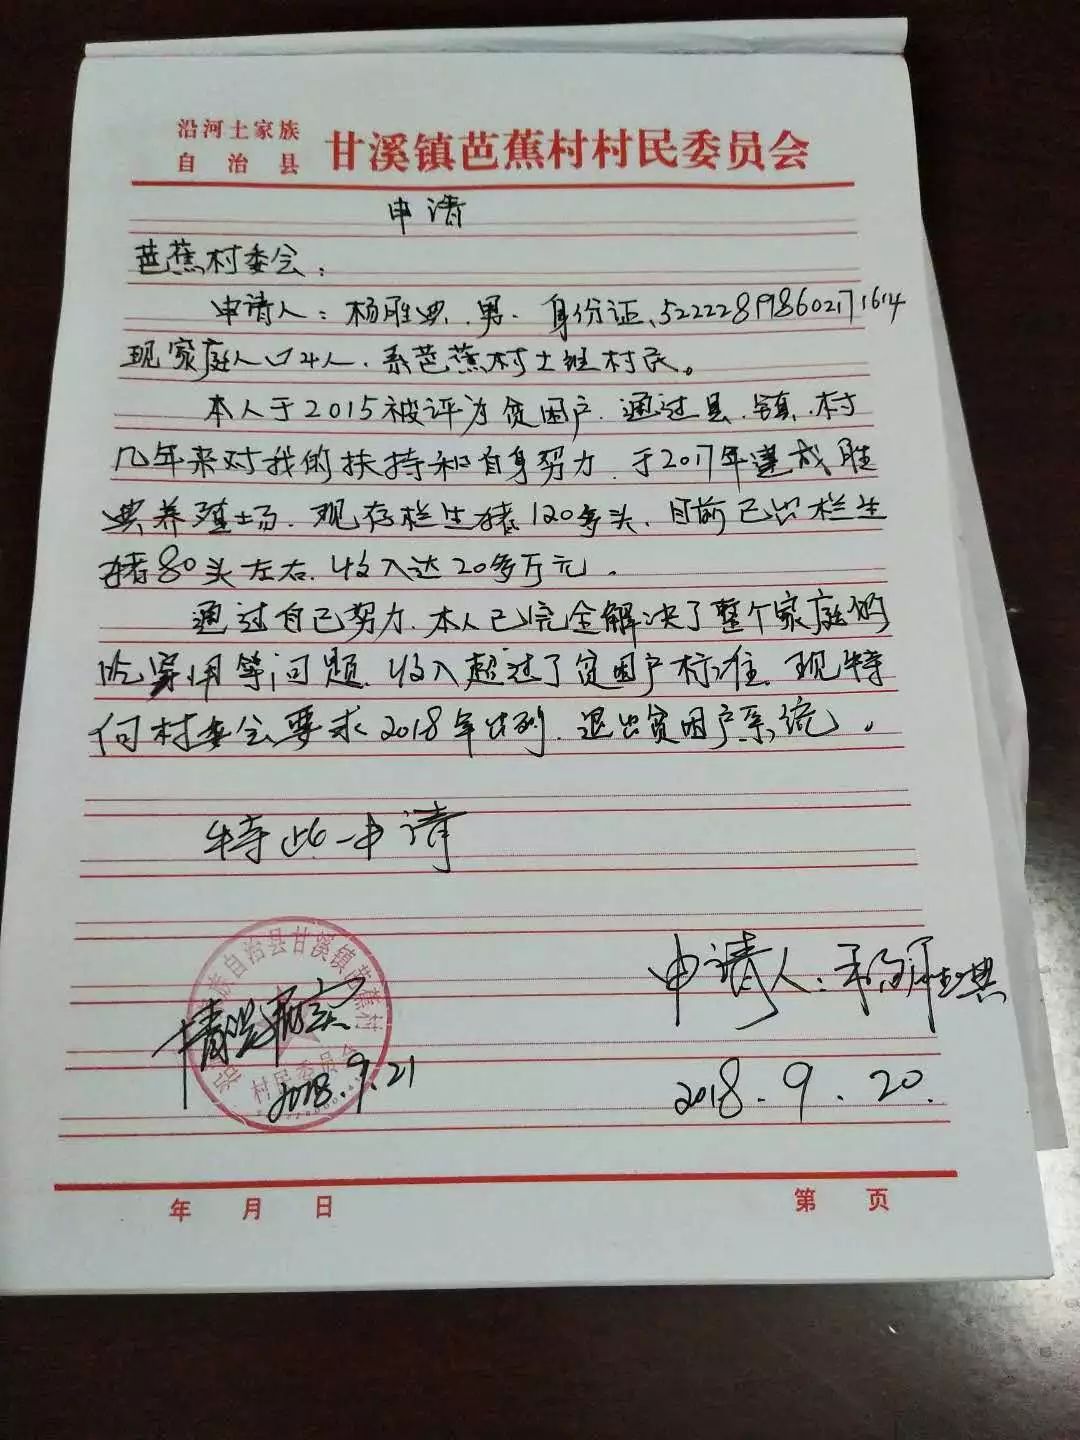 沿河土家族
自治县
甘溪镇芭蕉村村民委员会
申请
芭蕉村委会：
申请人：杨胜典、男、身份证、522228198602171614
现家庭人口4人、系芭蕉村土组村民。
本人于2015被评为贫困户、通过县、镇、村
几年来对我的扶持和自身努力、于2017年建成胜
典养殖场、现存栏生猪120多头、目前已出栏生
猪80头左右、收入达20多万元。
通过自己努力、本人已完全解决了整个家庭的
吃穿用等问题、收入超过了贫困户标准、现特
向村委会要求2018年出列、退出贫困户系统。
特此申请
申请人：杨胜典
2018.9.20
情况属实
2018.9.21
自治县甘溪镇芭蕉村
村民委员会
年 月 日
第 页